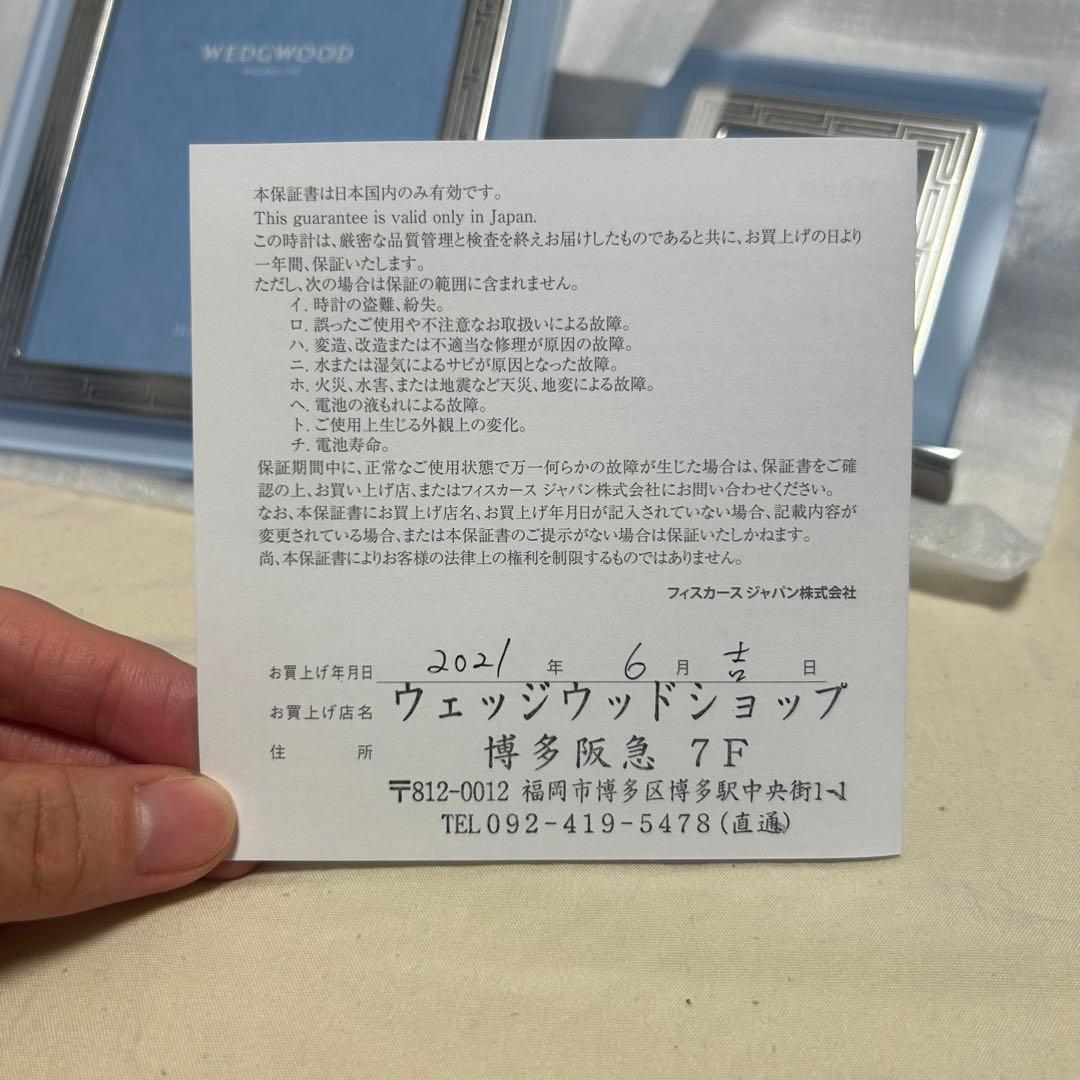 WEDGWOOD
本保証書は日本国内のみ有効です。
This guarantee is valid only in Japan.
この時計は、厳密な品質管理と検査を終えお届けしたものであると共に、お買上げの日より
一年間、保証いたします。
ただし、次の場合は保証の範囲に含まれません。
イ. 時計の盗難、紛失。
ロ. 誤ったご使用や不注意なお取扱いによる故障。
ハ. 変造、改造または不適当な修理が原因の故障。
ニ. 水または湿気によるサビが原因となった故障。
ホ. 火災、水害、または地震など天災、地変による故障。
ヘ. 電池の液もれによる故障。
ト. ご使用上生じる外観上の変化。
チ. 電池寿命。
保証期間中に、正常なご使用状態で万一何らかの故障が生じた場合は、保証書をご確
認の上、お買い上げ店、またはフィスカース ジャパン株式会社にお問い合わせください。
なお、本保証書にお買上げ店名、お買上げ年月日が記入されていない場合、記載内容が
変更されている場合、または本保証書のご提示がない場合は保証いたしかねます。
尚、本保証書によりお客様の法律上の権利を制限するものではありません。
フィスカース ジャパン株式会社
お買上げ年月日 2021 年 6 月 吉 日
お買上げ店名 ウェッジウッドショップ
住 所 博多阪急 7F
〒812-0012 福岡市博多区博多駅中央街1-1
TEL 092-419-5478(直通)